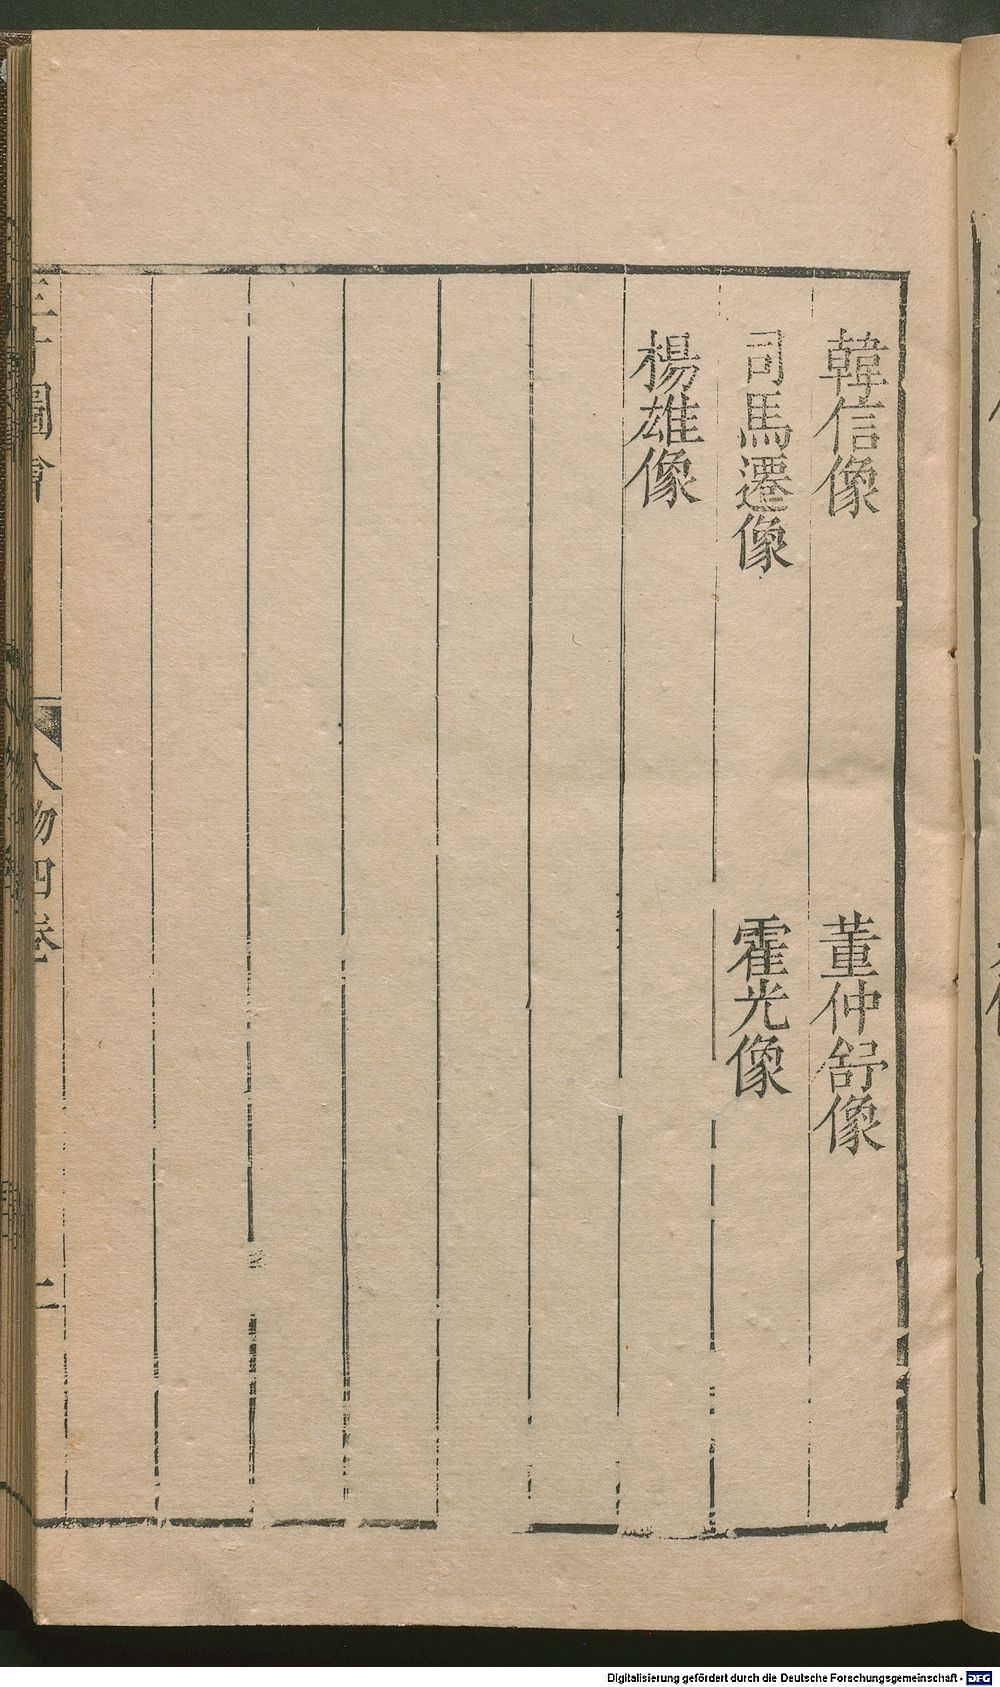 韓信像
董仲舒像
司馬遷像
霍光像
楊雄像
三才圖會
人物四卷
二
Digitalisierung gefördert durch die Deutsche Forschungsgemeinschaft - DFG